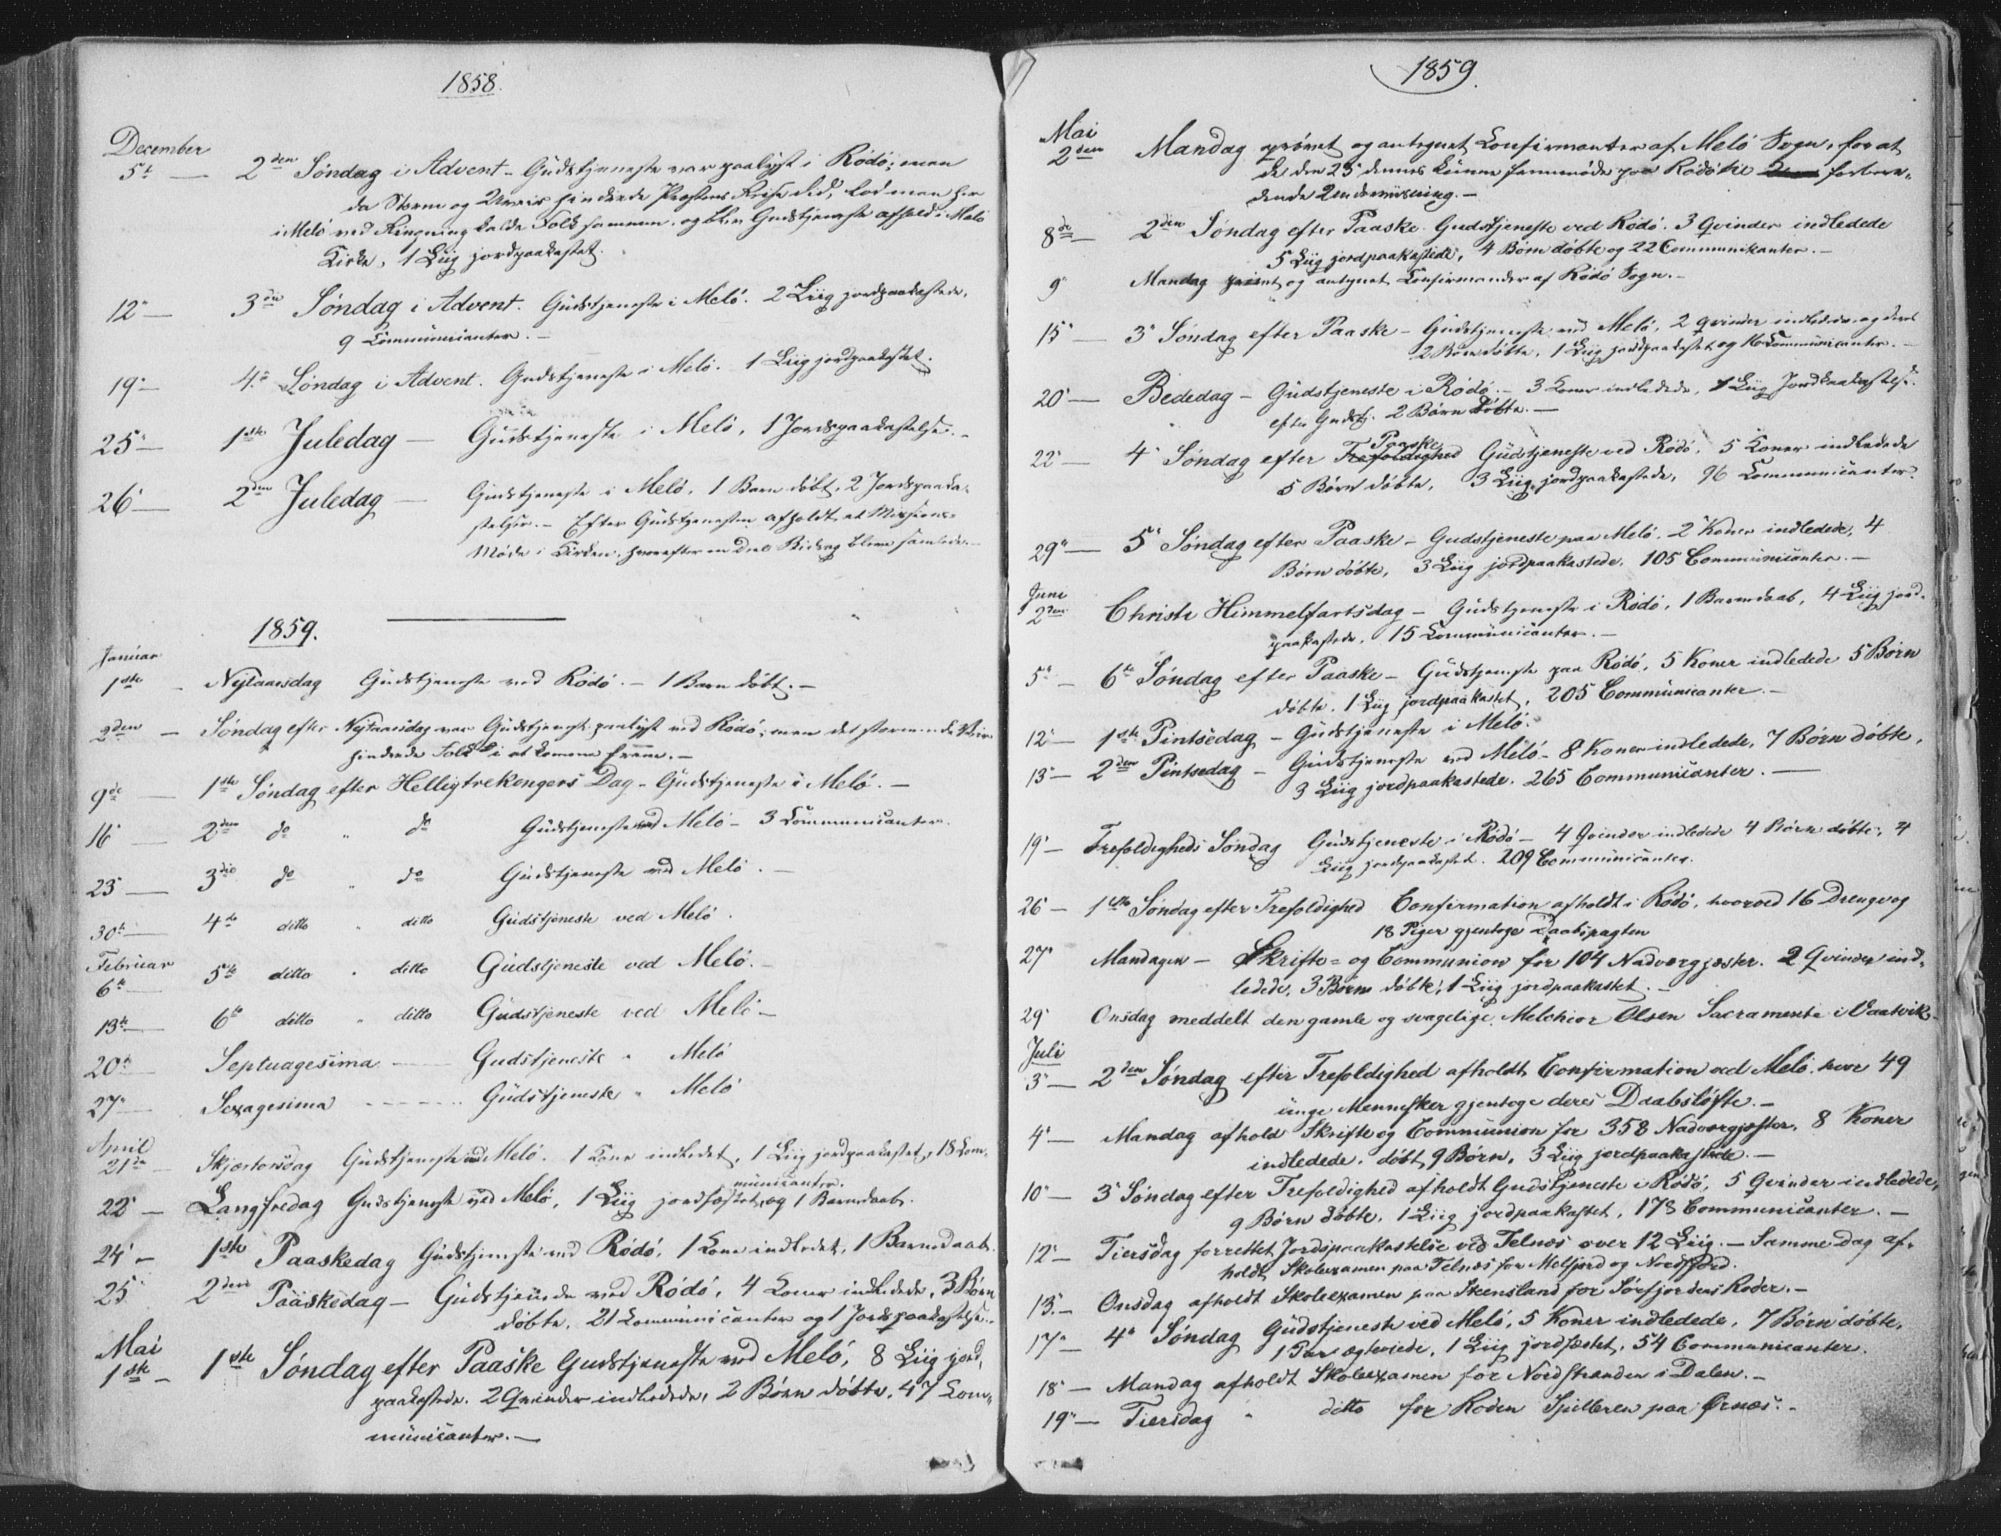 1858.
December
5te — 2den Søndag i Advent – Gudstjeneste var paalyst i Rödö; men
da Storm og Uveir hindrede Præstens Reise did, lod man her
i Melö ved Ringning kalde Folk sammen, og blev Gudstjeneste afholdt i Melö
Kirke, 1 Liig jordpaakastet.
12" — 3die Søndag i Advent. Gudstjeneste i Melö. 2 Liig jordpaakastede,
9 Communicanter. —
19" — 4de Søndag i Advent. Gudstjeneste i Melö. 1 Liig jordpaakastet.
25" — 1ste Juledag — Gudstjeneste i Melö, 1 Jordpaakastelse. –
26" — 2den Juledag — Gudstjeneste i Melö, 1 Barn döbt, 2 Jordpaaka-
stelser. – Efter Gudstjenesten afholdt et Missions-
Möde i Kirken, hvorefter en Deel Bidrag bleve samlede. –
1859.
Januar
1ste – Nytaarsdag Gudstjeneste ved Rödö. – 1 Barn döbt. –
2den – Søndag efter Nytaarsdag var Gudstjeneste paalyst ved Rödö; men det stormende Veir
hindrede Folk i at komme frem. –
9de — 1ste Søndag efter Helligtrekongers Dag – Gudstjeneste i Melö. –
16" — 2den do " do Gudstjeneste ved Melö – 3 Communicanter.
23" — 3die do " do Gudstjeneste ved Melö. –
30te — 4de ditto " ditto Gudstjeneste ved Melö.
Februar
6te — 5te ditto " ditto Gudstjeneste ved Melö. –
13de — 6te ditto " ditto Gudstjeneste ved Melö –
20de — Septuagesima — Gudstjeneste " Melö
27" — Sexagesima - - - - Gudstjeneste " Melö
April
21de – Skjærtorsdag Gudstjeneste ved Melö. 1 Kone indledet, 1 Liig jordpaakastet, 18 Com-
municanter.
22" — Langfredag Gudstjeneste ved Melö, 1 Liig jordfæstet, og 1 Barndaab.
24" – 1ste Paaskedag Gudstjeneste ved Rödö, 1 Kone indledet, 1 Barnedaab.
25" 2den Paaskedag – Gudstjeneste ved Rödö, 4 Koner indledede, 3 Börn
döbte, 21 Communicanter og 1 Jordpaakastelse. –
Mai
1ste – 1ste Søndag efter Paaske Gudstjeneste ved Melö, 8 Liig jord-
paakastede. 2 Qvinder indledede, 2 Börn döbte, 47 Com-
municanter. —
1859.
Mai
2den Mandag prövet og antegnet Confirmanter af Melö Sogn, for at
de den 25de dennes kunne fremmöde paa Rödö til forbere-
dende Underviisning. –
8de — 2den Søndag efter Paaske. Gudstjeneste ved Rödö. 3 Qvinder indledede
5 Liig jordpaakastede, 4 Børn döbte og 22 Communikanter. –
9" Mandag prövet og antegnet Confirmander af Rödö Sogn. –
15" — 3" Søndag efter Paaske – Gudstjeneste ved Melö, 2 qvinder indledede og
2 Børn döbte, 1 Liig jordpaakastet og 16 Communicanter. –
20" — Bededag – Gudstjeneste i Rödö. – 3 Koner indledede, 1 Liig Jordpaakastelse.
efter Gudstj. 2 Börn döbte. —
22" — 4" Søndag efter Trefoldighed Paaske Gudstjeneste ved Rödö, 5 Koner indledede
5 Börn döbte, 3 Liig jordpaakastede, 96 Communicanter.
29" — 5" Søndag efter Paaske – Gudstjeneste paa Melö. 2 Koner indledede, 4
Börn döbte, 3 Liig jordpaakastede. 105 Communicanter. –
Juni
2den Christi Himmelfartsdag – Gudstjeneste i Rödö, 1 Barnedaab, 4 Liig jord-
paakastede, 15 Communicanter. –
5" – 6te Søndag efter Paaske – Gudstjeneste paa Rödö, 5 Koner indledede 5 Börn
döbte. 1 Liig jordpaakastet, 205 Communicanter –
12" — 1ste Pintsedag – Gudstjeneste i Melö.
13" — 2den Pintsedag – Gudstjeneste ved Melö – 8 Koner indledede, 7 Börn döbte,
3 Liig jordpaakastede. 265 Communicanter. —
19" – Trefoldigheds Søndag Gudstjeneste i Rödö – 4 Qvinder indledede 4 Börn döbte, 4
Liig jordpaakastet. 209 Communicanter.
26" – 1ste Søndag efter Trefoldighed Confirmation afholdt i Rödö, hvorved 16 Drenge og
18 Piger gjentoge Daabspagten
27" Mandagen – Skrifte- og Communion for 104 Nadvergjæster. 2 Qvinder ind-
ledede, 3 Börn döbte, 1 Liig jordpaakastet. –
29" Onsdag meddelt den gamle og svagelige Melchior Olsen Sacramente i Vaatvik.
Juli
3" — 2den Søndag efter Trefoldighed afholdt Confirmation ved Melö. hvor 49
unge Mennesker gjentoge deres Daabsløfte. –
4" — Mandag afhold Skrifte og Communion for 358 Nadvergjæster. 8 Koner
indledede. döbt 9 Börn, 3 Liig jordpaakastede. –
10" – 3" Søndag efter Trefoldighed afholdt Gudstjeneste i Rödö, 5 Qvinder indledede,
9 Börn döbte, 1 Liig jordpaakastet, 178 Communicanter. –
12" – Tiersdag forrettet Jordpaakastelse ved Telnes over 12 Liig. – Samme Dag af-
holdt Skoleexamen paa Telnes for Melfjord og Nordfjord.
13" – Onsdag afholdt Skoleexamen paa Steensland for Sørfjordens Roder. –
17" – 4" Søndag Gudstjeneste ved Melö, 5 Koner indledede, 7 Börn döbte,
1 Par ægteviede, 1 Liig jordfæstet, 54 Communicanter.
18" – Mandag afholdt Skoleexamen for Nordstranden i Dalen. –
19" – Tiersdag " ditto for Roden Spilderen paa Ørnæs. –